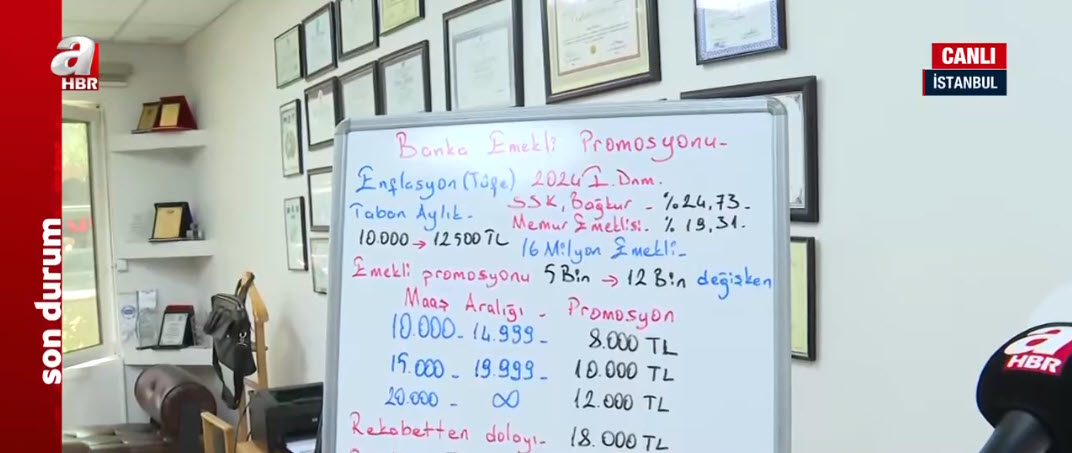 a
HBR
CANLI
İSTANBUL
son durum
Banka Emekli Promosyonu-
Enflasyon (Tüfe) 2024 I. Dnm.
SSK, Bağkur - %24,73-
Taban Aylık -
Memur Emeklisi. % 19,31.
10.000 → 12500 TL
16 Milyon Emekli-
Emekli promosyonu 5 Bin → 12 Bin değişken
Maaş Aralığı - Promosyon
10.000 - 14.999 - 8.000 TL
15.000 - 19.999 - 10.000 TL
20.000 - ∞ 12.000 TL
Rekabetten dolayı - 18.000 TL
a
HBR